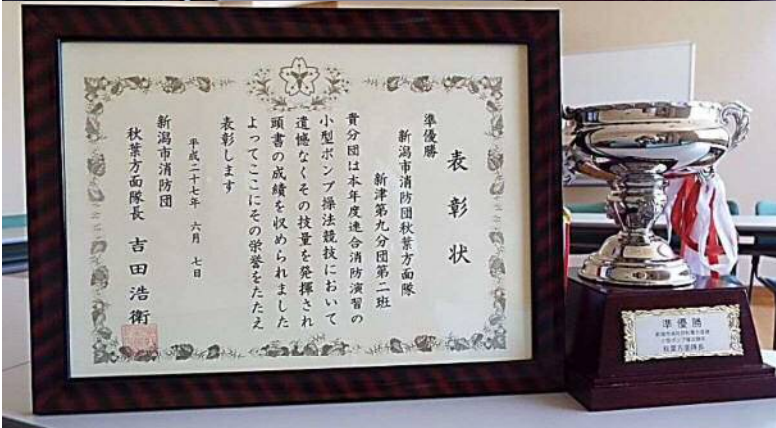 表彰状
準優勝
新潟市消防団秋葉方面隊
新津第九分団第二班
貴分団は本年度連合消防演習の
小型ポンプ操法競技において
遺憾なくその技量を発揮され
頭書の成績を収められました
よってここにその栄誉をたたえ
表彰します
平成二十七年 六月 七日
新潟市消防団
秋葉方面隊長 吉田浩衛
準優勝
秋葉方面隊長